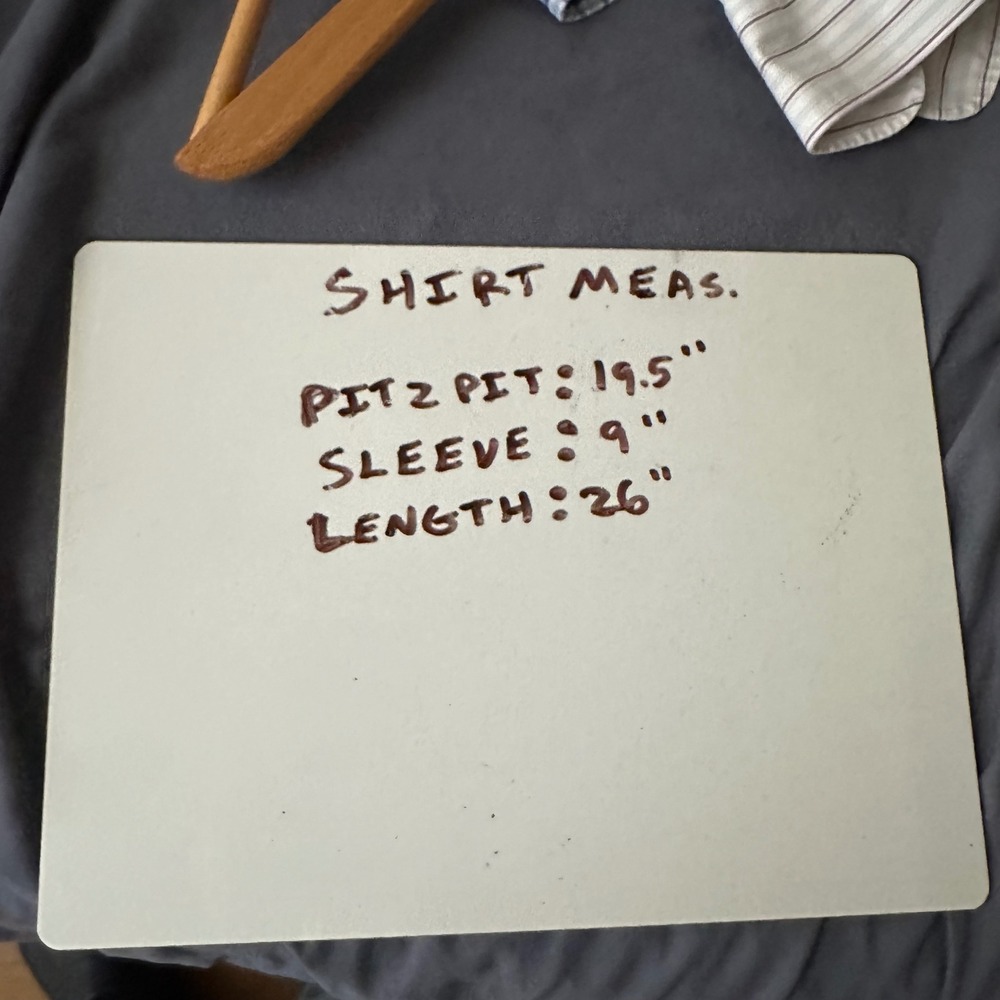 SHIRT MEAS.
PIT 2 PIT: 19.5"
SLEEVE: 9"
LENGTH: 26"